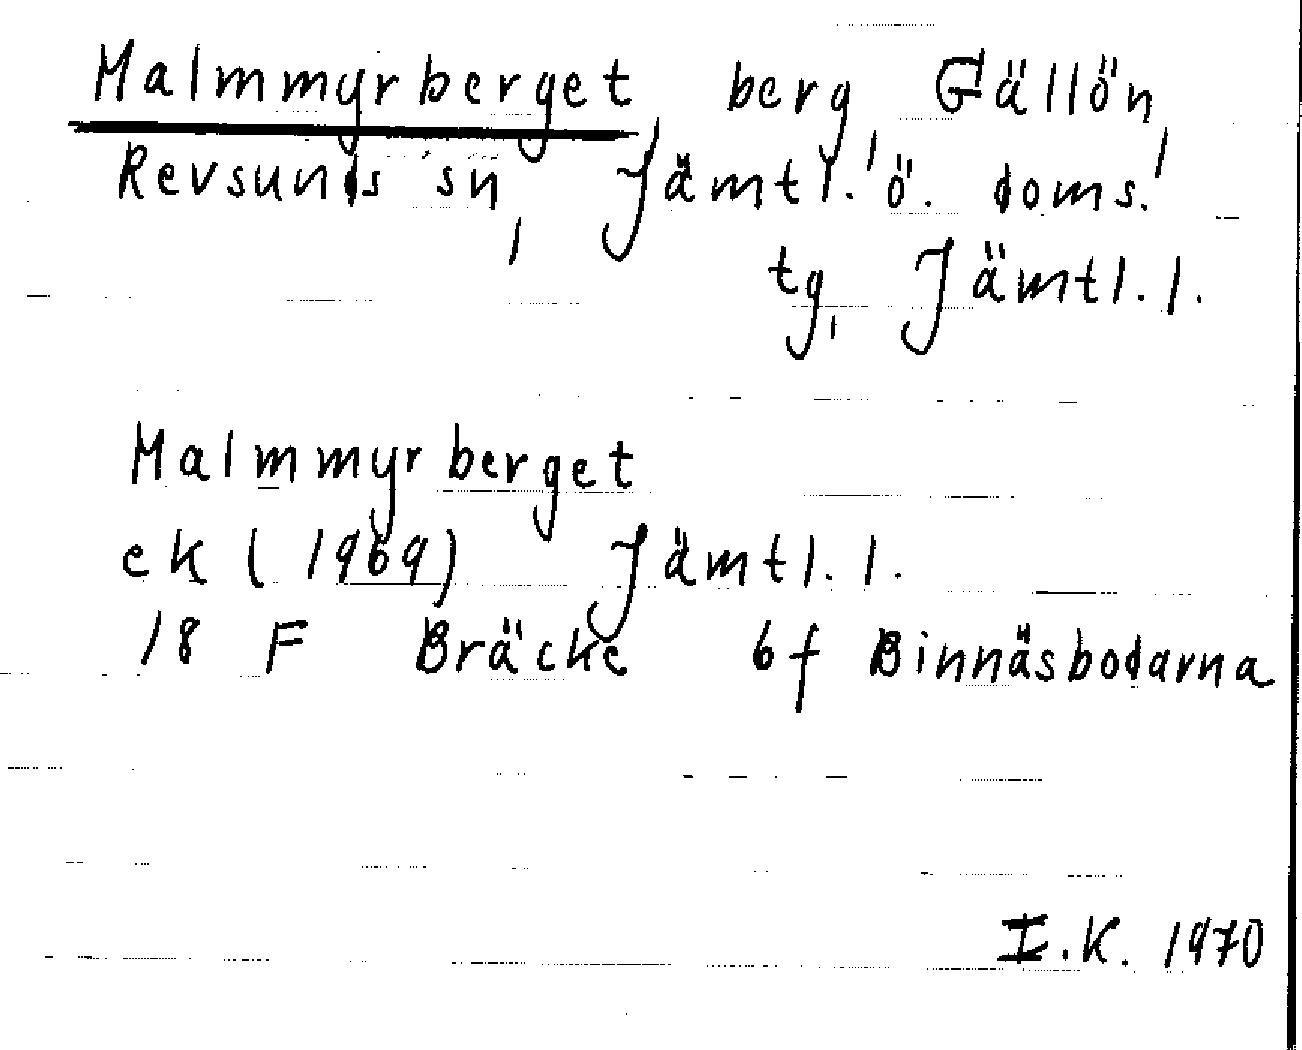 Malmmyrberget, berg, Gällön,
Revsunds sn, Jämtl. ö. doms.
tg, Jämtl. l.
Malmmyrberget
ek (1969) Jämtl. l.
18 F Bräcke 6f Binnäsbodarna
I.K. 1970